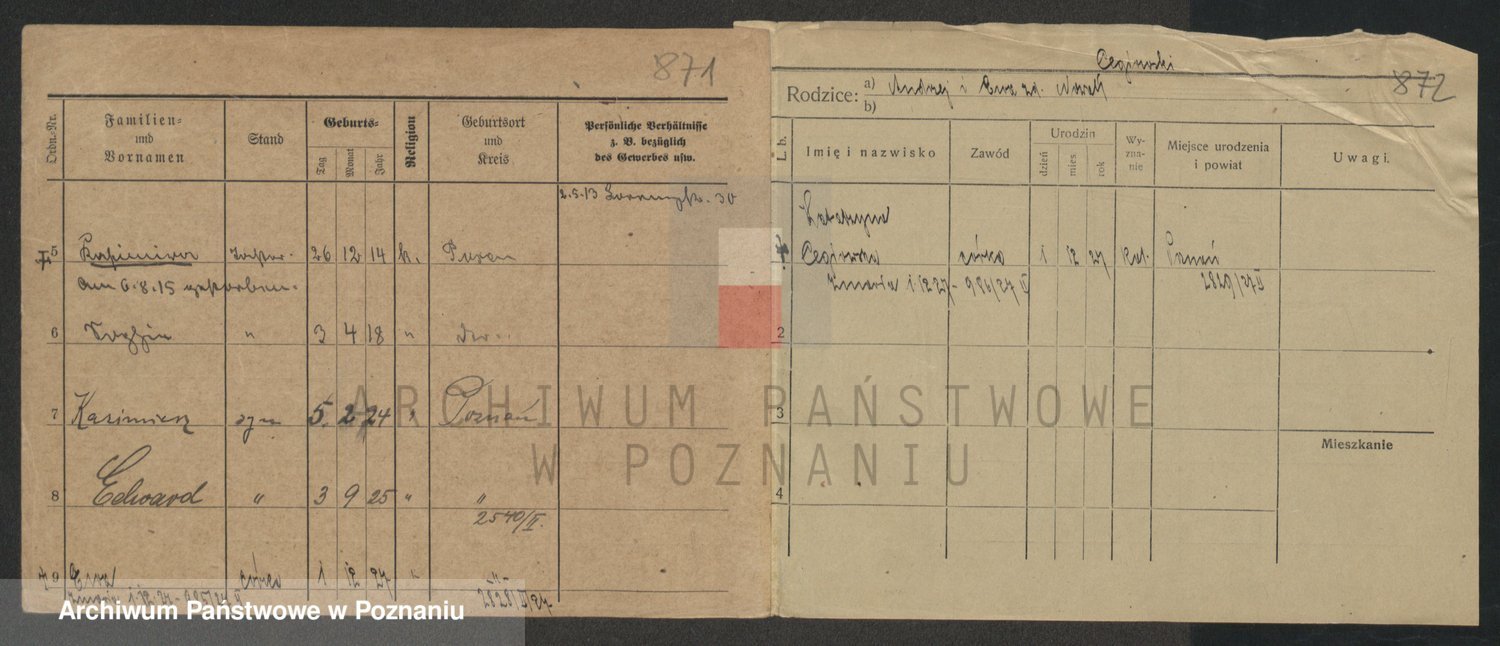 871
Ordn.-Nr.
Familien-
und
Vornamen
Stand
Geburts-
Tag
Monat
Jahr
Religion
Geburtsort
und
Kreis
Persönliche Verhältnisse
z. B. bezüglich
des Gewerbes usw.
2.5.13 30
5 26 12 14 k. Posen
am 6.8.15 gestorben.
6 " 3 4 18 "
7 Kazimierz syn 5. 2 24 " Poznań
8 Edward " 3 9 25 " "
2540/II.
9 Ewa córka 1 12 27 " "
zmarła 1.12.27
2828/II/27
872
Rodzice:
a) Andrzej i Ewa zd. Nowak
b)
L. b.
Imię i nazwisko
Zawód
Urodzin
dzień
mies.
rok
Wy-
zna-
nie
Miejsce urodzenia
i powiat
Uwagi.
Katarzyna
córka 1 12 27 kat. Poznań
zmarła 1.12.27 - 986/27 II
2829/27 II
2
3
4
Mieszkanie
ARCHIWUM PAŃSTWOWE
W POZNANIU
Archiwum Państwowe w Poznaniu